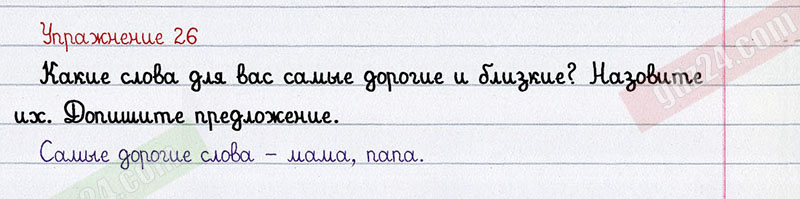 Упражнение 26
Какие слова для вас самые дорогие и близкие? Назовите
их. Допишите предложение.
Самые дорогие слова – мама, папа.
gdz24.com
gdz24.com